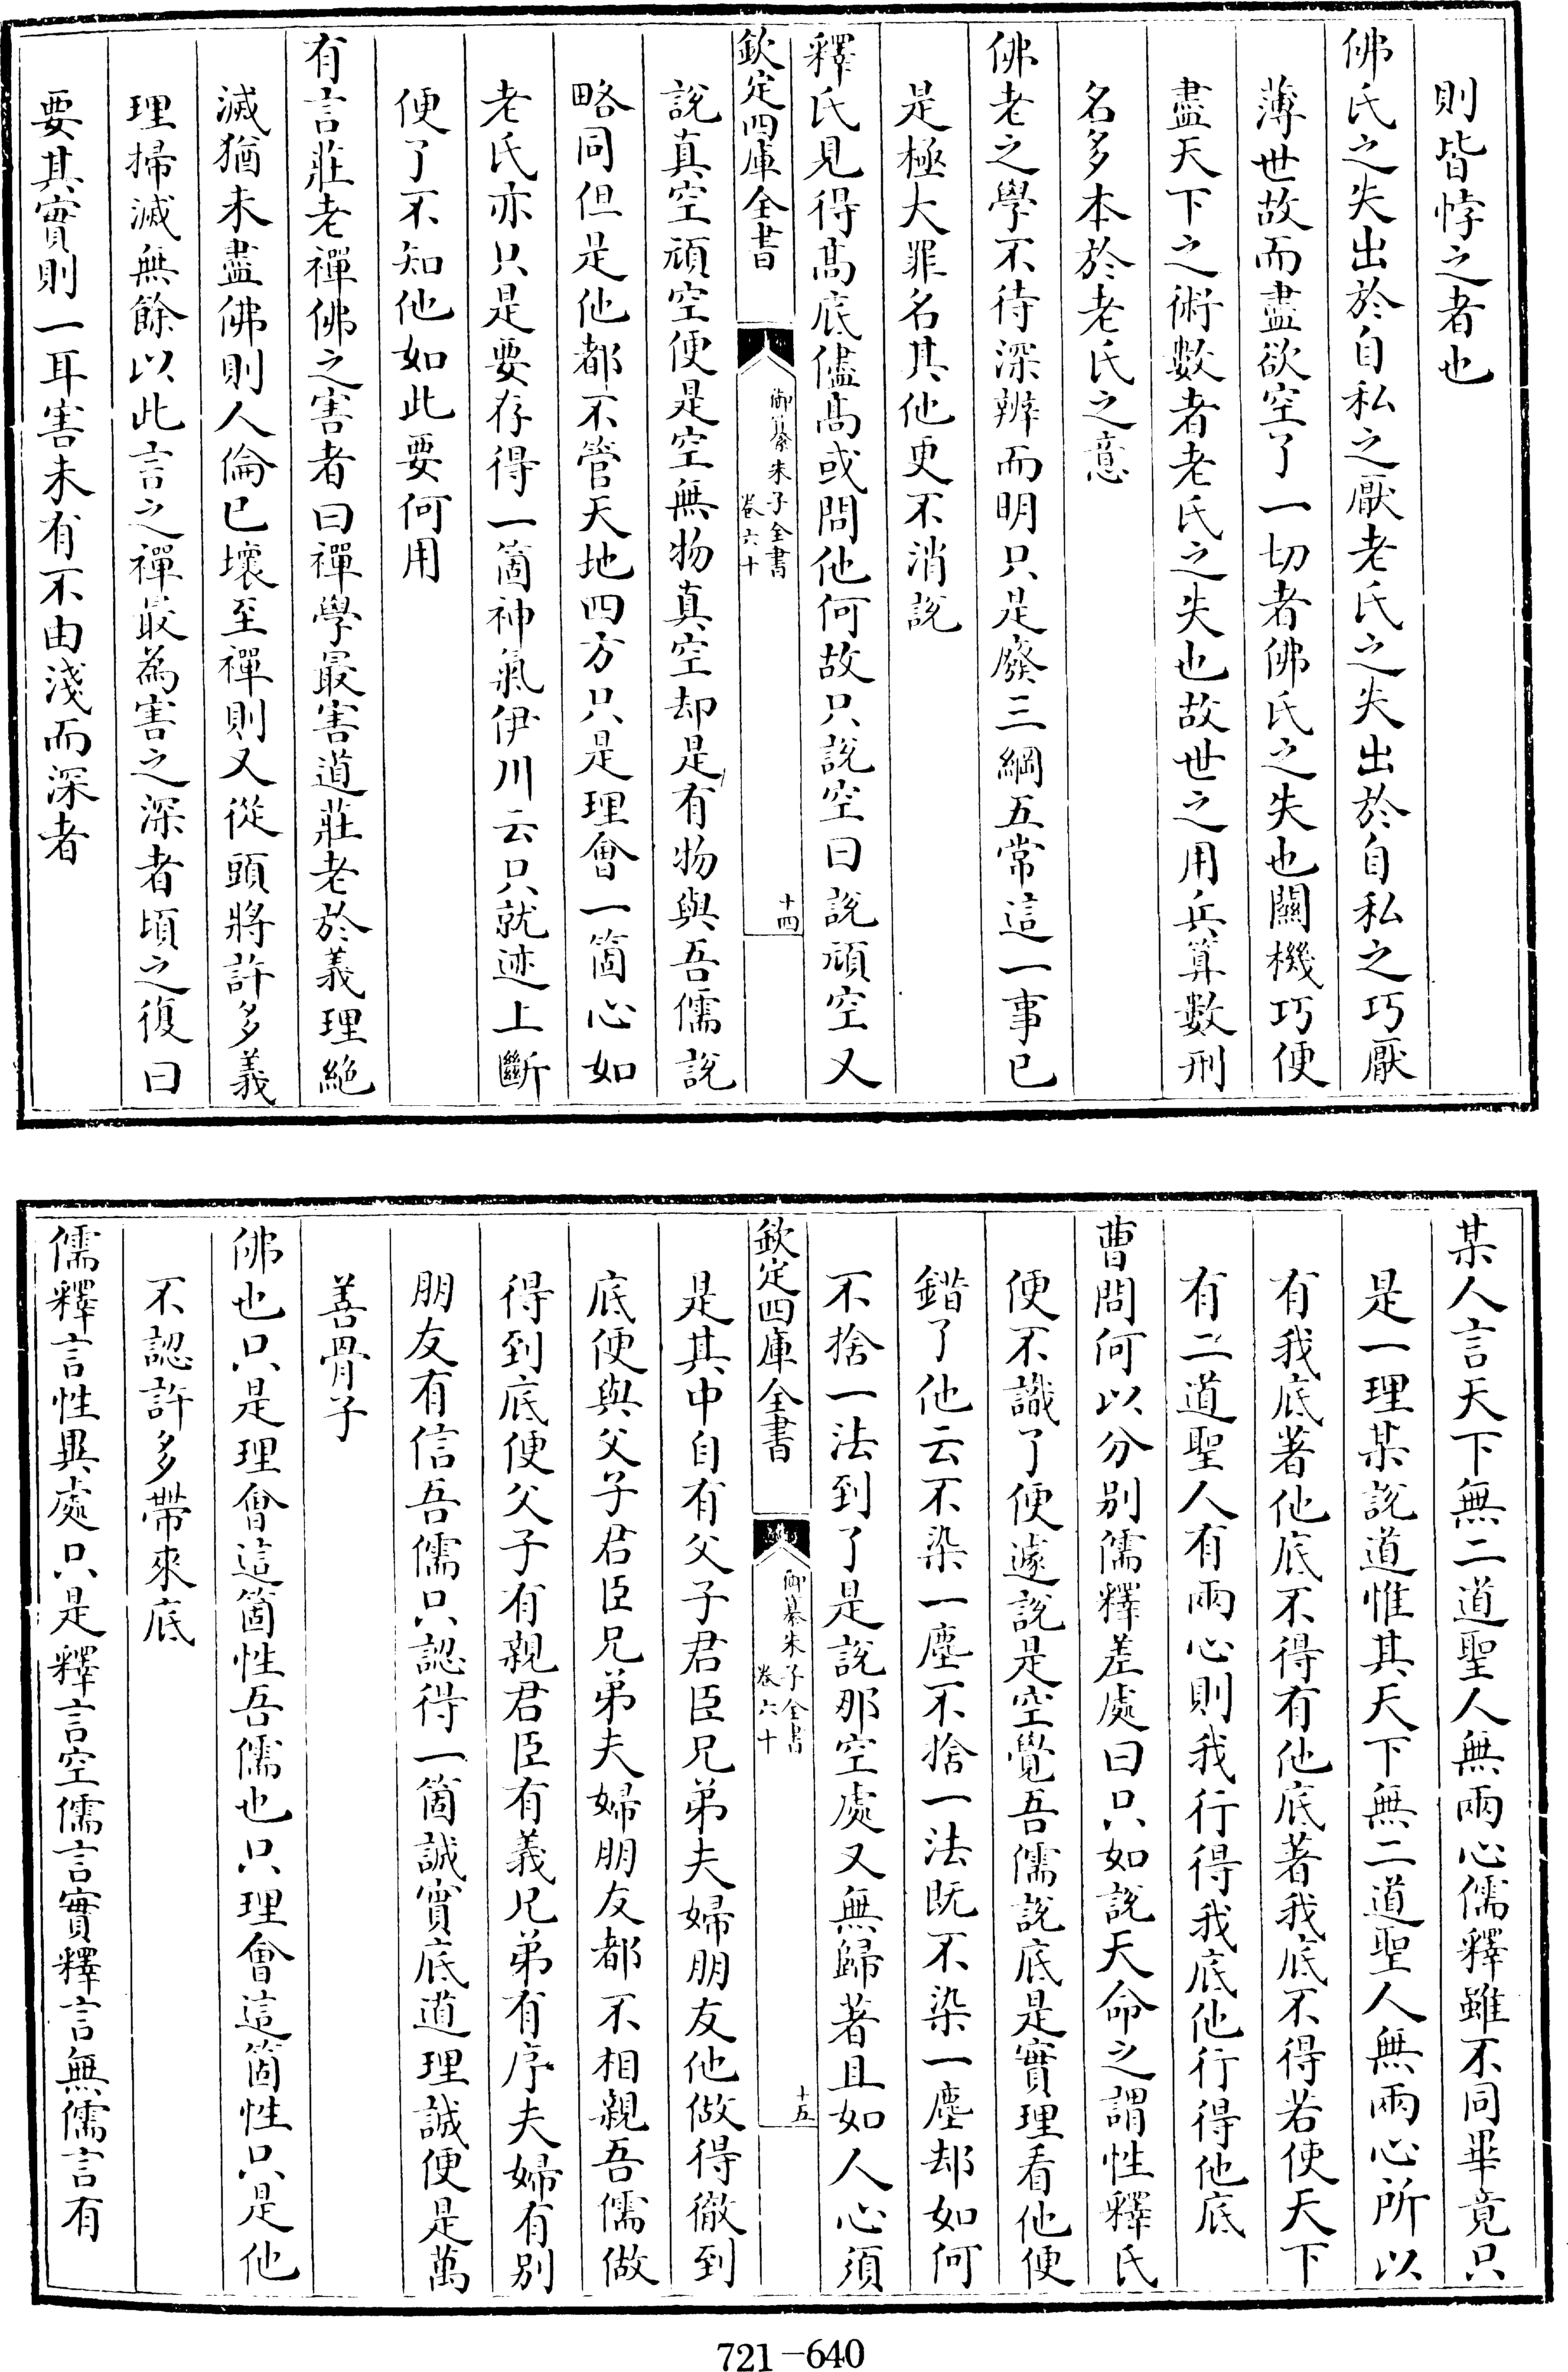 則皆悖之者也
佛氏之失出於自私之厭老氏之失出於自私之巧厭
薄世故而盡欲空了一切者佛氏之失也關機巧便
盡天下之術數者老氏之失也故世之用兵算數刑
名多本於老氏之意
佛老之學不待深辨而明只是廢三綱五常這一事已
是極大罪名其他更不消說
釋氏見得髙底儘髙或問他何故只說空曰說頑空又
欽定四庫全書
御纂朱子全書
卷六十
十四
說真空頑空便是空無物真空却是有物與吾儒說
略同但是他都不管天地四方只是理會一箇心如
老氏亦只是要存得一箇神氣伊川云只就迹上斷
便了不知他如此要何用
有言莊老禪佛之害者曰禪學最害道莊老於義理絶
滅猶未盡佛則人倫已壞至禪則又從頭將許多義
理掃滅無餘以此言之禪最為害之深者頃之復曰
要其實則一耳害未有不由淺而深者
某人言天下無二道聖人無兩心儒釋雖不同畢竟只
是一理某說道惟其天下無二道聖人無兩心所以
有我底著他底不得有他底著我底不得若使天下
有二道聖人有兩心則我行得我底他行得他底
曹問何以分别儒釋差處曰只如說天命之謂性釋氏
便不識了便遽說是空覺吾儒說底是實理看他便
錯了他云不染一塵不捨一法既不染一塵却如何
不捨一法到了是說那空處又無歸著且如人心須
欽定四庫全書
御纂朱子全書
卷六十
十五
是其中自有父子君臣兄弟夫婦朋友他做得徹到
底便與父子君臣兄弟夫婦朋友都不相親吾儒做
得到底便父子有親君臣有義兄弟有序夫婦有别
朋友有信吾儒只認得一箇誠實底道理誠便是萬
善骨子
佛也只是理會這箇性吾儒也只理會這箇性只是他
不認許多帶來底
儒釋言性異處只是釋言空儒言實釋言無儒言有
721-640